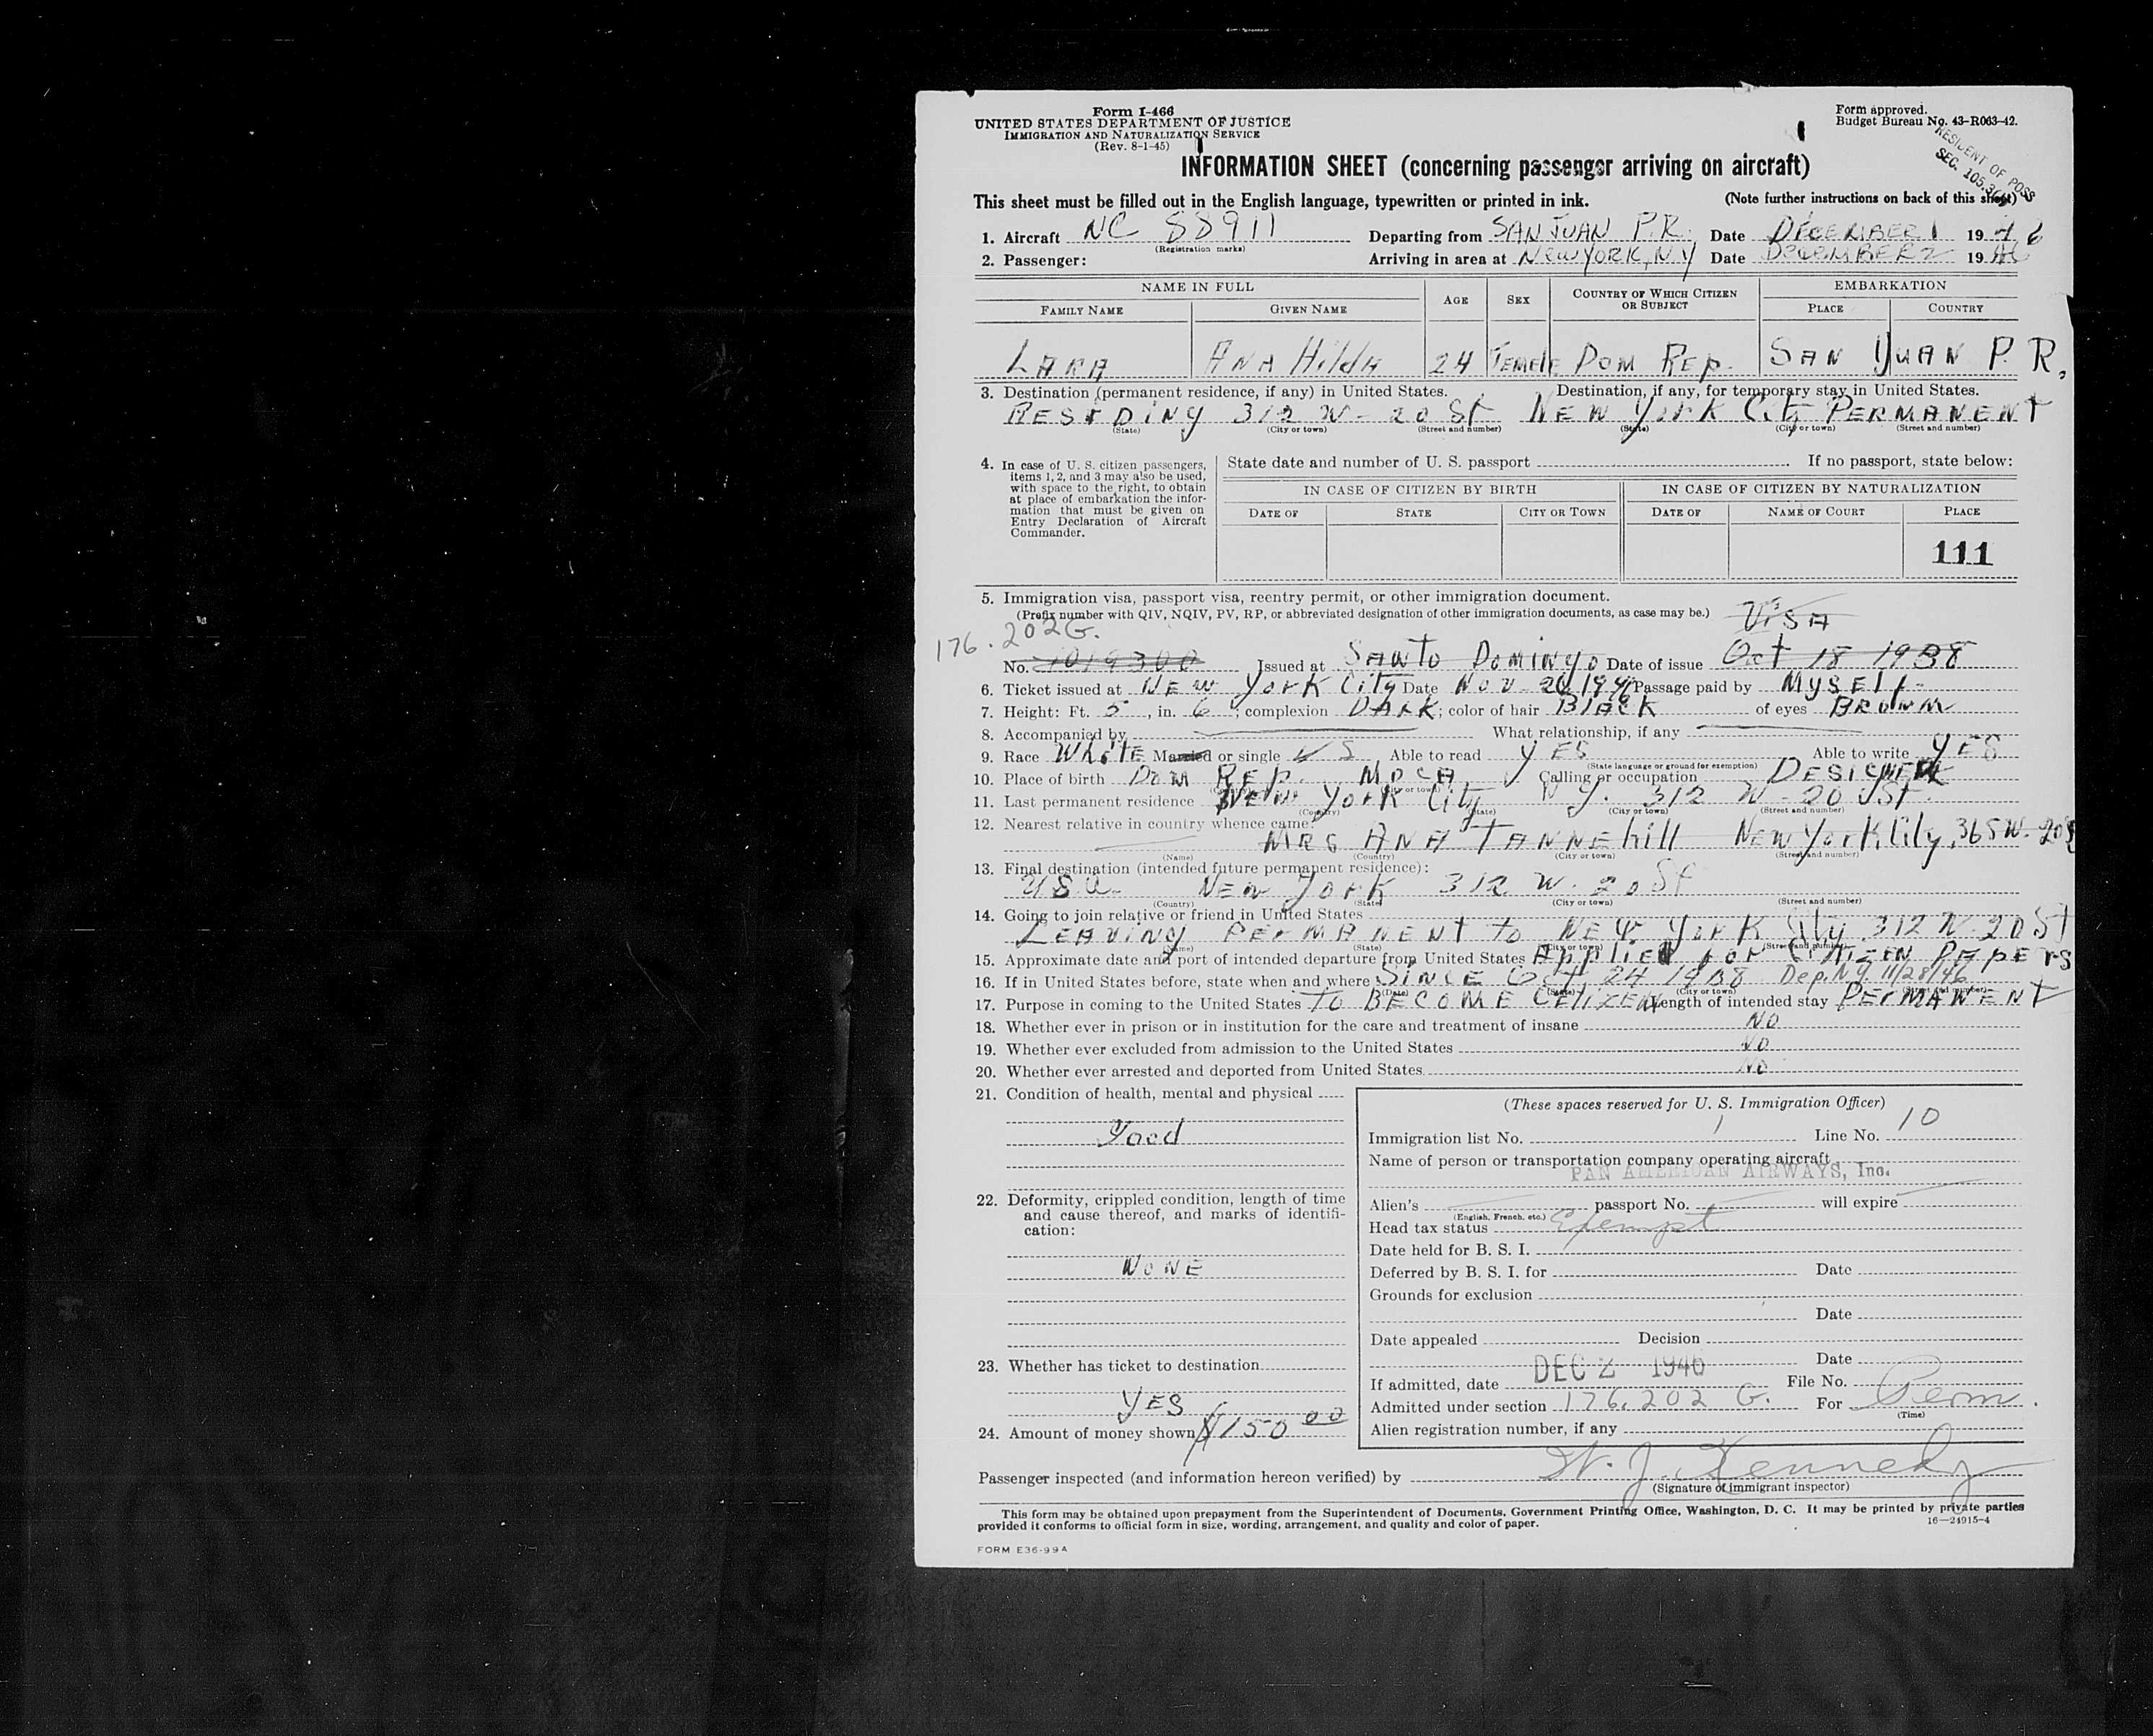 Form I-466
UNITED STATES DEPARTMENT OF JUSTICE
IMMIGRATION AND NATURALIZATION SERVICE
(Rev. 8-1-45)
Form approved.
Budget Bureau No. 43-R063-42.
RESIDENT OF POSS
SEC. 105.3
INFORMATION SHEET (concerning passenger arriving on aircraft)
This sheet must be filled out in the English language, typewritten or printed in ink. (Note further instructions on back of this sheet)
1. Aircraft NC 88911 Departing from SAN JUAN P.R. Date DECEMBER 1 1946
(Registration marks)
2. Passenger: Arriving in area at NEW YORK, N.Y Date DECEMBER 2 1946
NAME IN FULL AGE SEX COUNTRY OF WHICH CITIZEN OR SUBJECT EMBARKATION
FAMILY NAME GIVEN NAME PLACE COUNTRY
LARA ANA HildA 24 FEMElE DOM REp. SAN JUAN P.R.
3. Destination (permanent residence, if any) in United States. Destination, if any, for temporary stay in United States.
RESIDING 312 W - 20 St NEW YORK City PERMANENT
(State) (City or town) (Street and number) (State) (City or town) (Street and number)
4. In case of U. S. citizen passengers, items 1, 2, and 3 may also be used, with space to the right, to obtain at place of embarkation the information that must be given on Entry Declaration of Aircraft Commander.
State date and number of U. S. passport If no passport, state below:
IN CASE OF CITIZEN BY BIRTH IN CASE OF CITIZEN BY NATURALIZATION
DATE OF STATE CITY OR TOWN DATE OF NAME OF COURT PLACE
111
5. Immigration visa, passport visa, reentry permit, or other immigration document.
(Prefix number with QIV, NQIV, PV, RP, or abbreviated designation of other immigration documents, as case may be.) VISA
176.202G.
No. 1019300 Issued at SANTO DOMINGO Date of issue Oct 18 1938
6. Ticket issued at NEW YORK City Date NOV - 20 1946 Passage paid by MYSElf
7. Height: Ft. 5, in. 6; complexion DARK; color of hair BlACK of eyes BROWN
8. Accompanied by What relationship, if any
9. Race WhiTE Married or single S Able to read YES Able to write YES
(State language or ground for exemption)
10. Place of birth DOM REp. MOCA Calling or occupation DESIGNER
(Country) (City or town)
11. Last permanent residence NEW YORK City N Y. 312 W - 20 St.
(Country) (State) (City or town) (Street and number)
12. Nearest relative in country whence came:
MRS ANA TANNEhill New York City, 365 W. 20 St
(Name) (Country) (City or town) (Street and number)
13. Final destination (intended future permanent residence):
USA NEW YORK 312 W. 20 St
(Country) (State) (City or town) (Street and number)
14. Going to join relative or friend in United States
LEAVING PERMANENT to NEW YORK City 312 W-20 St
(Name) (State) (City or town) (Street and number)
15. Approximate date and port of intended departure from United States APPliEd for CITIZEN PAPERS
16. If in United States before, state when and where SINCE Oct. 24 1938 Dep. N.Y. 11/28/46
(Date) (State) (City or town) (Street and number)
17. Purpose in coming to the United States TO BECOME CETIZEN Length of intended stay PERMANENT
18. Whether ever in prison or in institution for the care and treatment of insane NO
19. Whether ever excluded from admission to the United States NO
20. Whether ever arrested and deported from United States. NO
21. Condition of health, mental and physical
Good
22. Deformity, crippled condition, length of time and cause thereof, and marks of identification:
NONE
23. Whether has ticket to destination
YES
24. Amount of money shown $150 00
(These spaces reserved for U. S. Immigration Officer)
Immigration list No. 1 Line No. 10
Name of person or transportation company operating aircraft
PAN AMERICAN AIRWAYS, Inc.
Alien's passport No. will expire
(English, French, etc.)
Head tax status Exempt
Date held for B. S. I.
Deferred by B. S. I. for Date
Grounds for exclusion
Date
Date appealed Decision
Date
If admitted, date DEC 2 1946 File No.
Admitted under section 176.202 G. For Perm.
(Time)
Alien registration number, if any
Passenger inspected (and information hereon verified) by W. J. Kennedy
(Signature of immigrant inspector)
This form may be obtained upon prepayment from the Superintendent of Documents, Government Printing Office, Washington, D. C. It may be printed by private parties
provided it conforms to official form in size, wording, arrangement, and quality and color of paper. 16—24915-4
FORM E36-99A